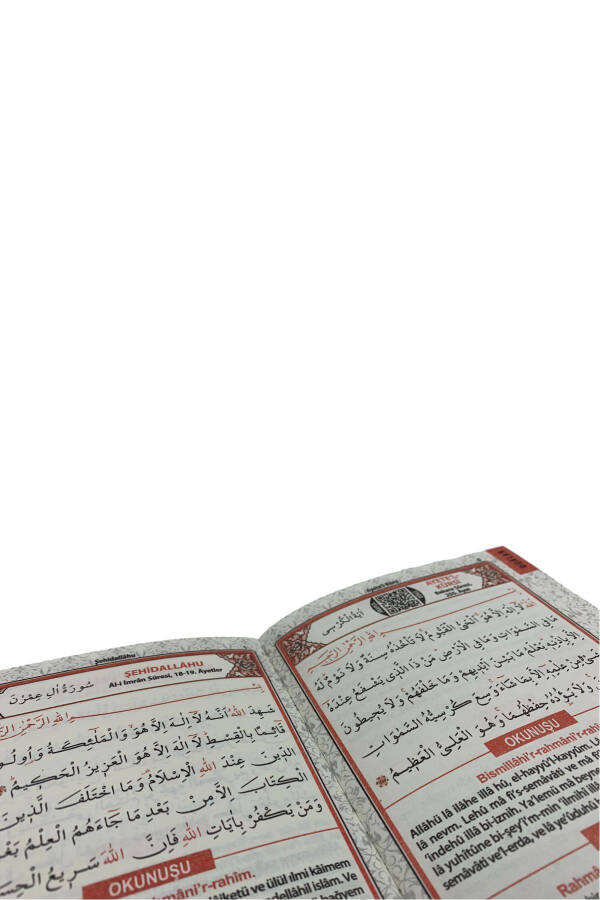 Şehidallâhu
ŞEHİDALLÂHU
Al-i İmrân Sûresi, 18-19. Ayetler
سُورَةُ اٰلِ عِمْرٰنَ
شَهِدَ اللّٰهُ اَنَّهُ لَٓا اِلٰهَ اِلَّا هُوَ وَالْمَلٰٓئِكَةُ وَاُولُو
قَٓائِمًا بِالْقِسْطِ لَٓا اِلٰهَ اِلَّا هُوَ الْعَزِيزُ الْحَكِيمُ
الدّ۪ينَ عِنْدَ اللّٰهِ الْاِسْلَامُ وَمَا اخْتَلَفَ الَّذ۪ينَ
الْكِتَابَ اِلَّا مِنْ بَعْدِ مَا جَٓاءَهُمُ الْعِلْمُ بَغْ
وَمَنْ يَكْفُرْ بِاٰيَاتِ اللّٰهِ فَاِنَّ اللّٰهَ سَر۪يعُ الْحِسَ
OKUNUŞU
mâni'r-rahîm.
laiketü ve ülül ılmi kâimem
ndellâhil islâm. Ve
AYETE'L-
KÜRSİ
Bakara Sûresi,
255. Ayet
اٰيَةُ الْكُرْسِى
اَللّٰهُ لَٓا اِلٰهَ اِلَّا هُوَ الْحَىُّ الْقَيُّومُ لَا تَاْخُذُهُ سِنَةٌ وَلَا نَوْمٌ لَهُ
مَا فِى السَّمٰوَاتِ وَمَا فِى الْاَرْضِ مَنْ ذَا الَّذ۪ى يَشْفَعُ عِنْدَهُ
اِلَّا بِاِذْنِه۪ يَعْلَمُ مَا بَيْنَ اَيْد۪يهِمْ وَمَا خَلْفَهُمْ وَلَا يُح۪يطُونَ
بِشَىْءٍ مِنْ عِلْمِه۪ٓ اِلَّا بِمَا شَٓاءَ وَسِعَ كُرْسِيُّهُ السَّمٰوَاتِ
وَلَا يَؤُ۫دُهُ حِفْظُهُمَا وَهُوَ الْعَلِىُّ الْعَظ۪يمُ
OKUNUŞU
Bismillâhi'r-rahmâni'r-rah
Allâhü lâ ilâhe illâ hû, el-hayyü'l-kayyûm. Lâ
lâ nevm. Lehû mâ fi's-semâvâti ve mâ f
'indehû illâ bi-iznih. Ya'lemü mâ beyne
lâ yuhîtûne bi-şey'i'm-min 'ilmihî ill
semâvâti ve'l-erda, ve lâ ye'ûduhû